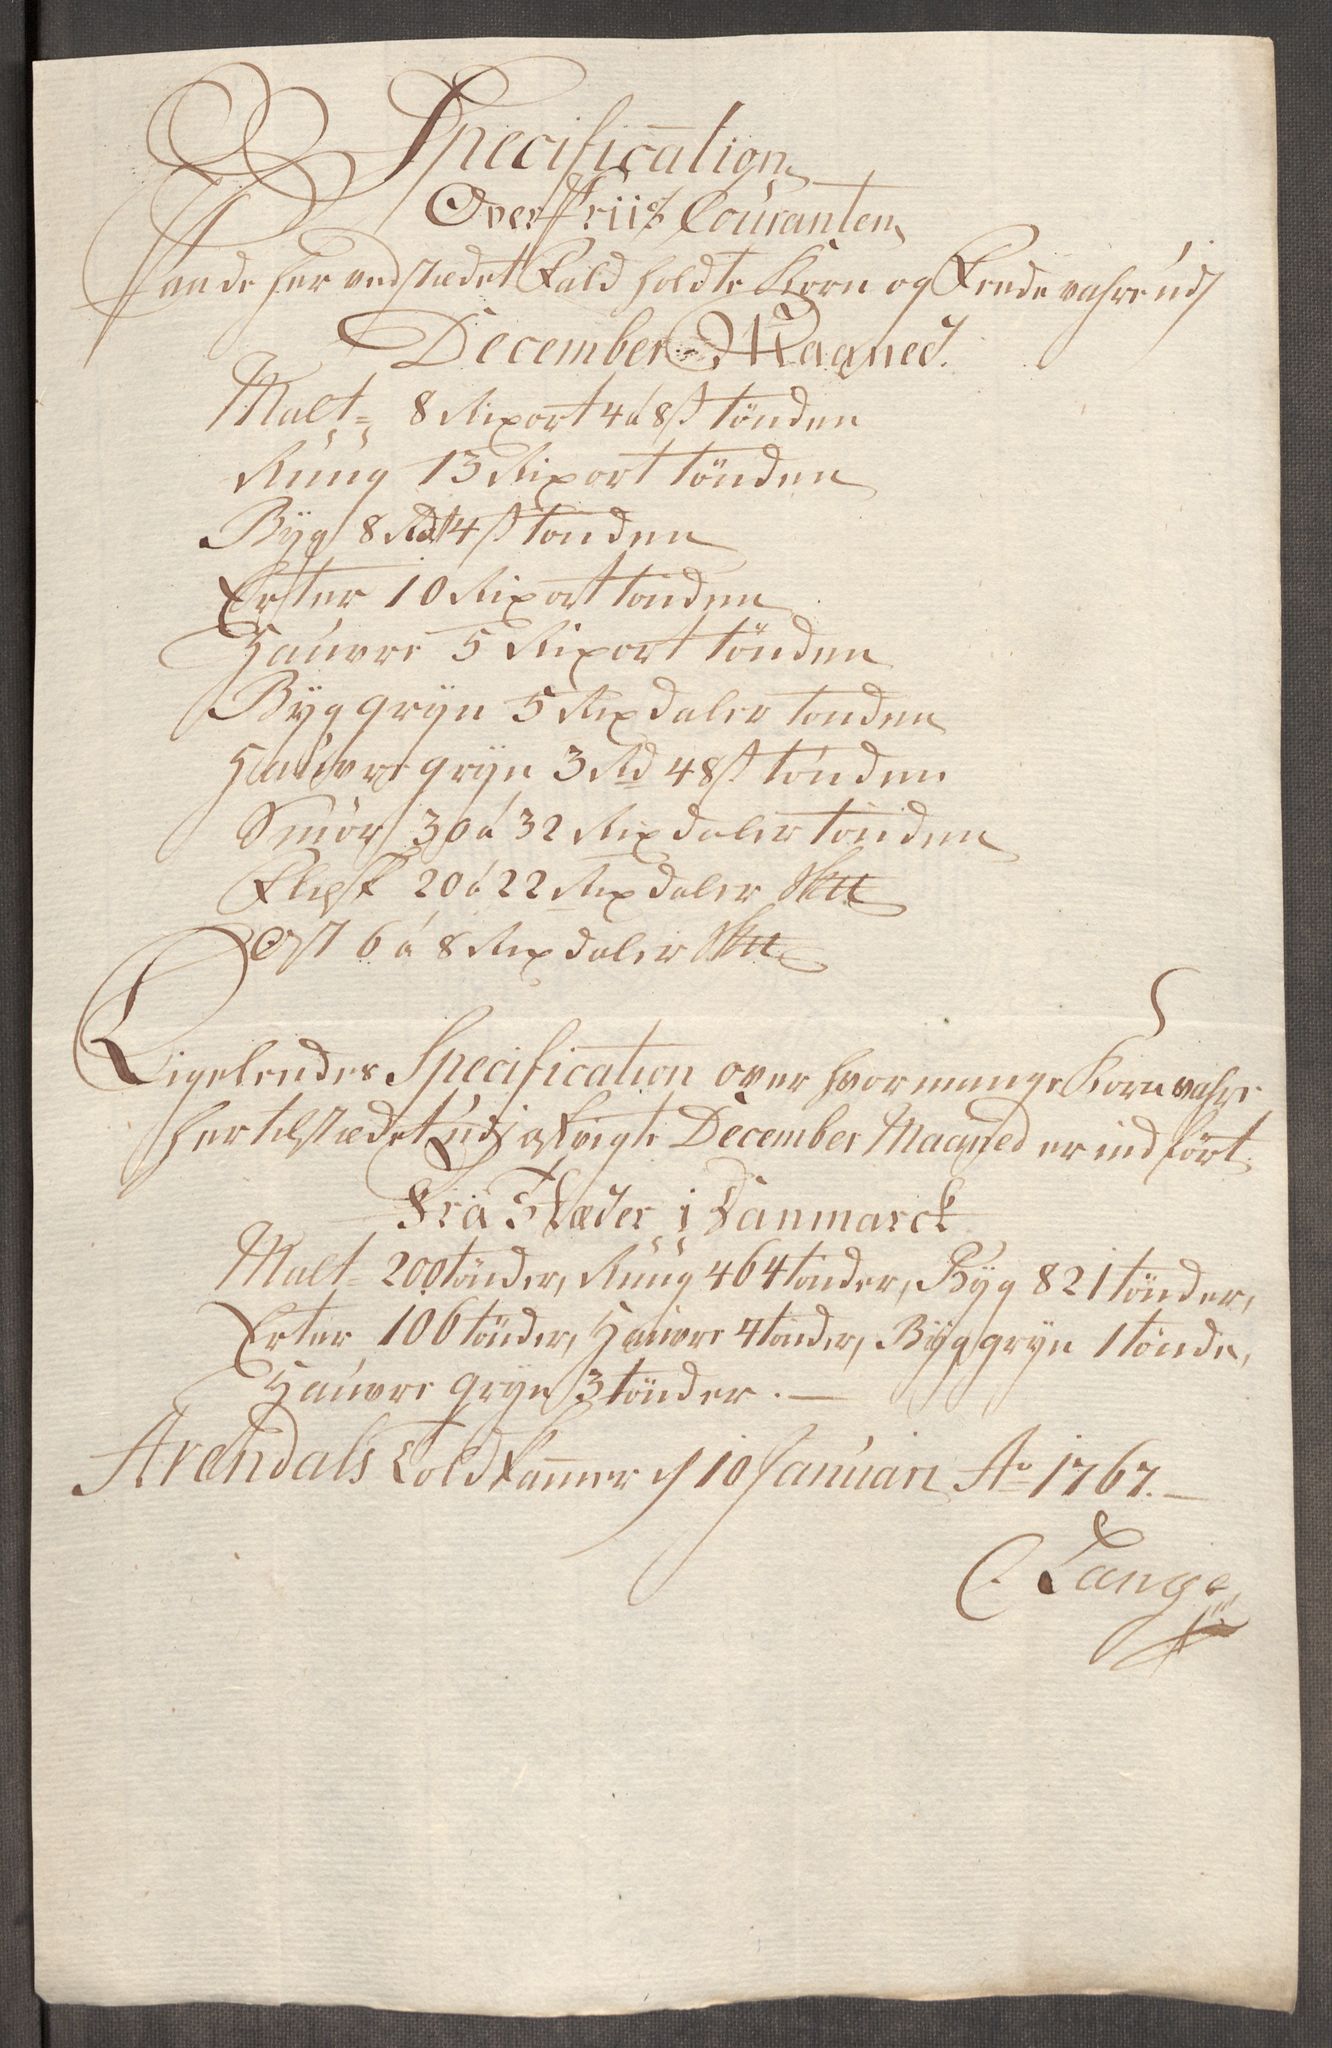 Specification
Over Priis Couranten
Paa de her ved stædet fald holdte Korn og Fede vahre udj
December Maaned.
Malt 8 Rixort 4 à 8 s tønden
Rúug 13 Rixort tønden
Byg 8 Rd 4 s tønden
Erter 10 Rixort tønden
Haúvre 5 Rixort tønden
Byggryn 5 Rixdaler tønden
Haúvre gryn 3 Rd 48 s tønden
Smør 30 à 32 Rixdaler tønden
Flesk 20 à 22 Rixdaler
Ost 6 à 8 Rixdaler
Ligeledes Specification over hvor mange Korn vahre
her til stædet udj afvigte December Maaned er ind ført
Fra Stæder i Danmarck
Malt 200 tønder, Rúug 464 tønder, Byg 821 tønder,
Erter 106 tønder, Haúvre 4 tønder, Byggryn 1 tønde,
Haúvre gryn 3 tønder. —
Arendals Toldkammer d 10 Januari Ao 1767. —
C. Lange